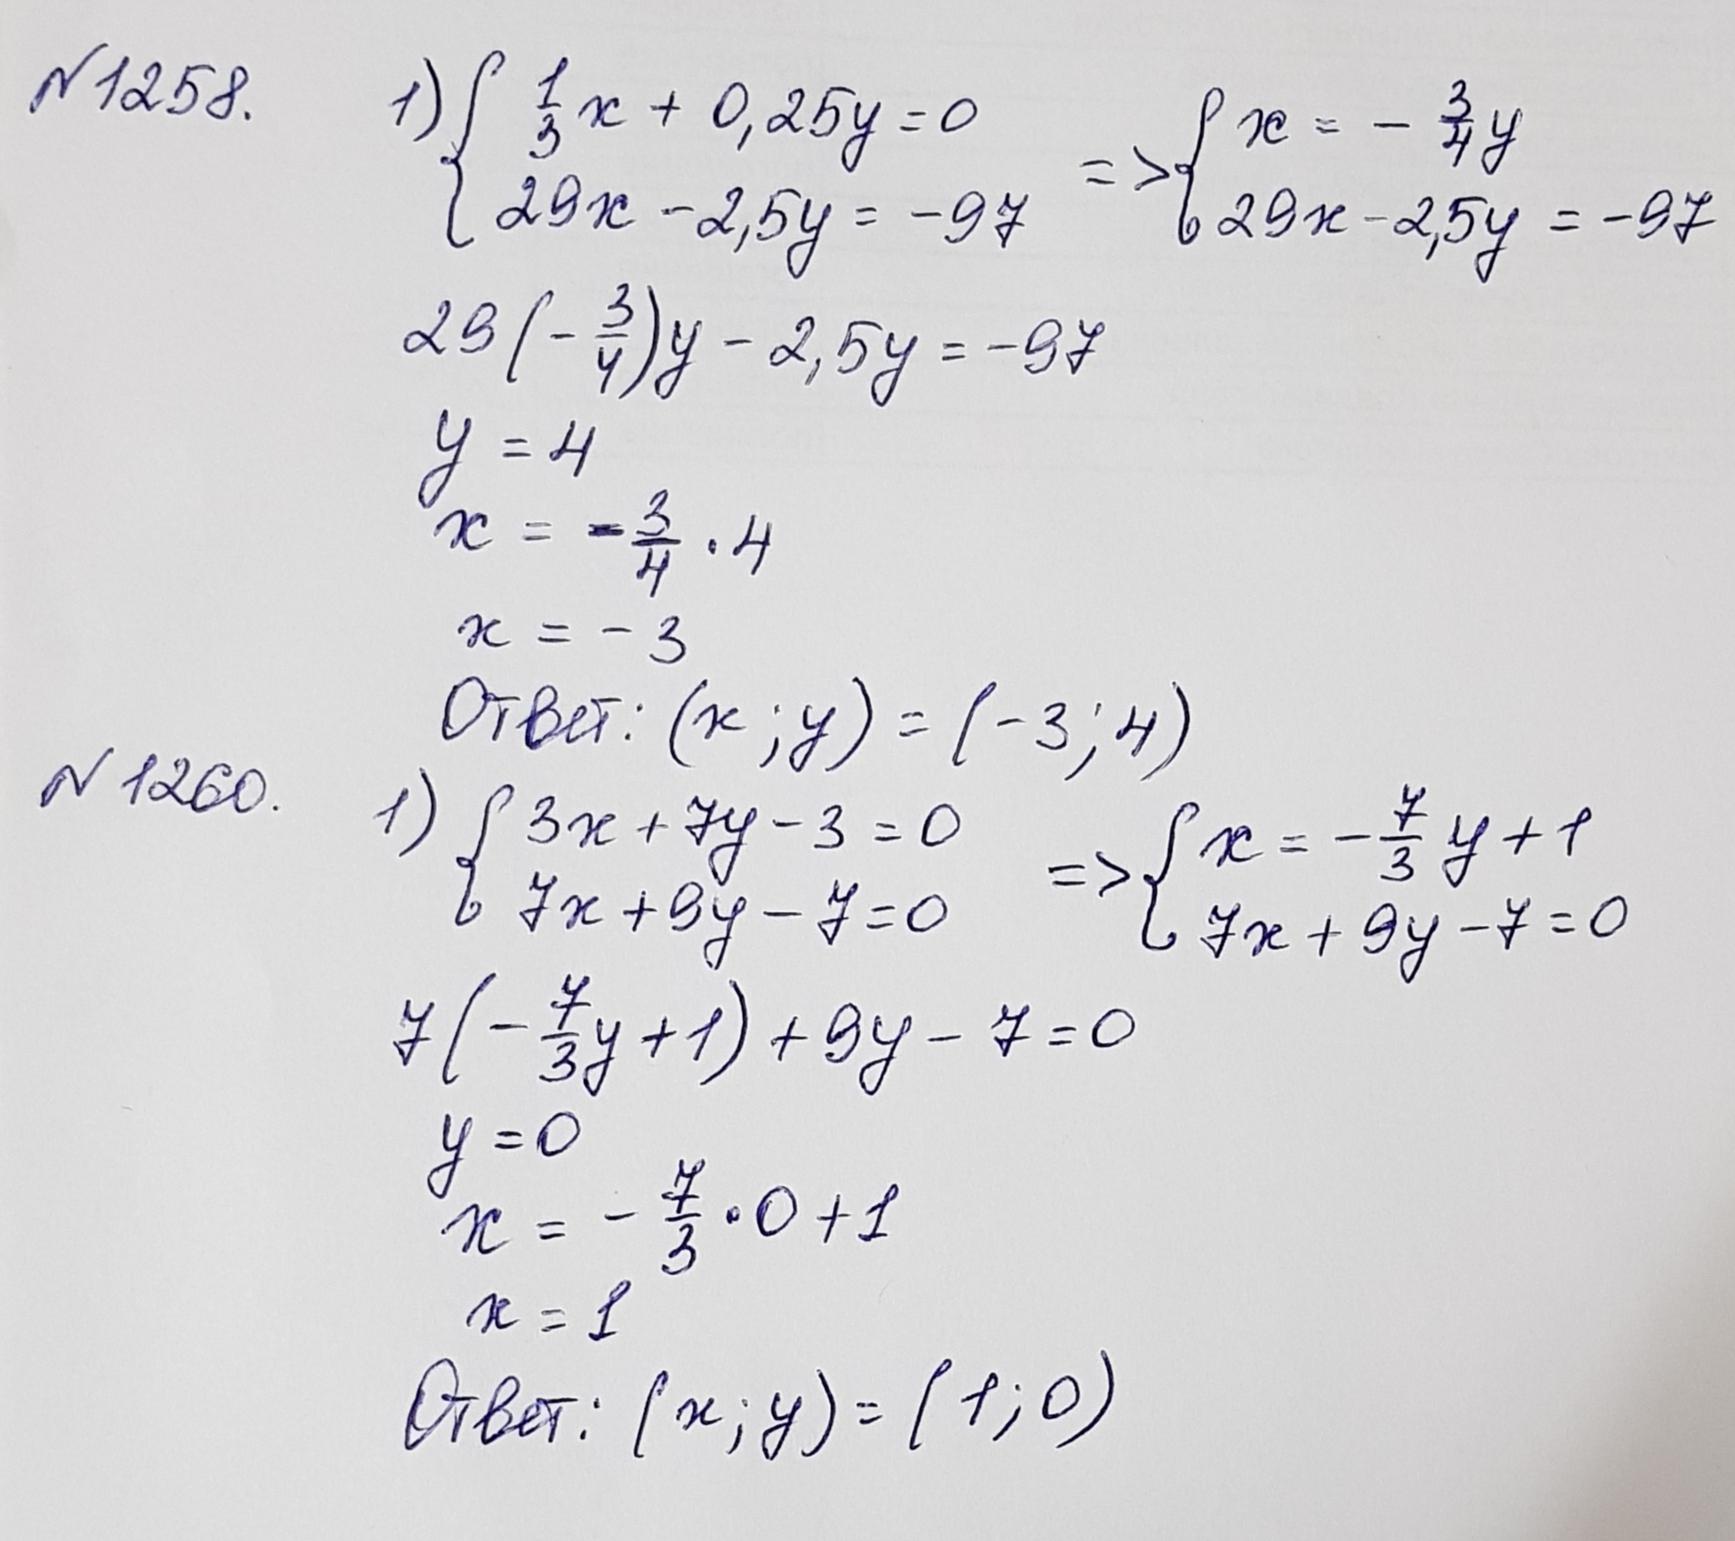 №1258. 1) { 1/3 x + 0,25y = 0 => { x = - 3/4 y
29x - 2,5y = -97 29x - 2,5y = -97
29(- 3/4)y - 2,5y = -97
y = 4
x = - 3/4 · 4
x = -3
Ответ: (x; y) = (-3; 4)
№1260. 1) { 3x + 7y - 3 = 0 => { x = - 7/3 y + 1
7x + 9y - 7 = 0 7x + 9y - 7 = 0
7(- 7/3 y + 1) + 9y - 7 = 0
y = 0
x = - 7/3 · 0 + 1
x = 1
Ответ: (x; y) = (1; 0)